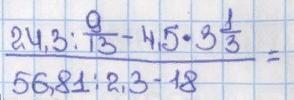 24,3 : 9/13 - 4,5 • 3 1/3
56,81 : 2,3 - 18 =